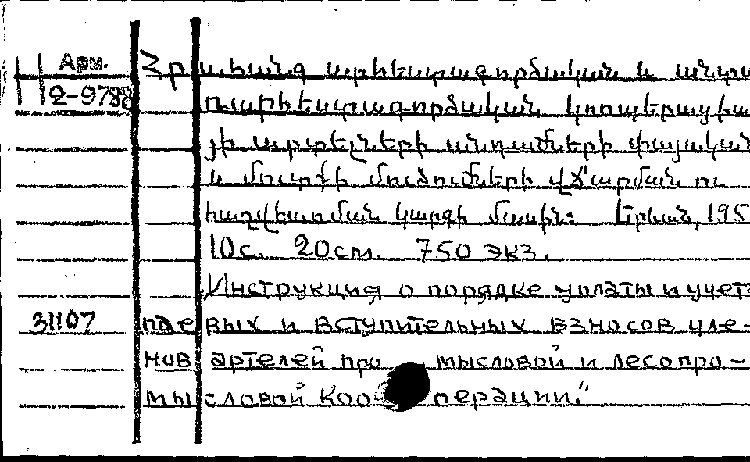 Арм.
2-9788
Հրահանգ արհեստագործական և անտա
ռարհեստագործական կոոպերացիա
յի արտելների անդամների փայական
և մուտքի մուծումների վճարման ու
հաշվեառման կարգի մասին: Երևան, 195
10с. 20cm. 750 экз.
Инструкция о порядке уплаты и учета
31107 пае вых и вступительных взносов чле-
нов артелей про мысловой и лесопро-
мы словой коо операции."